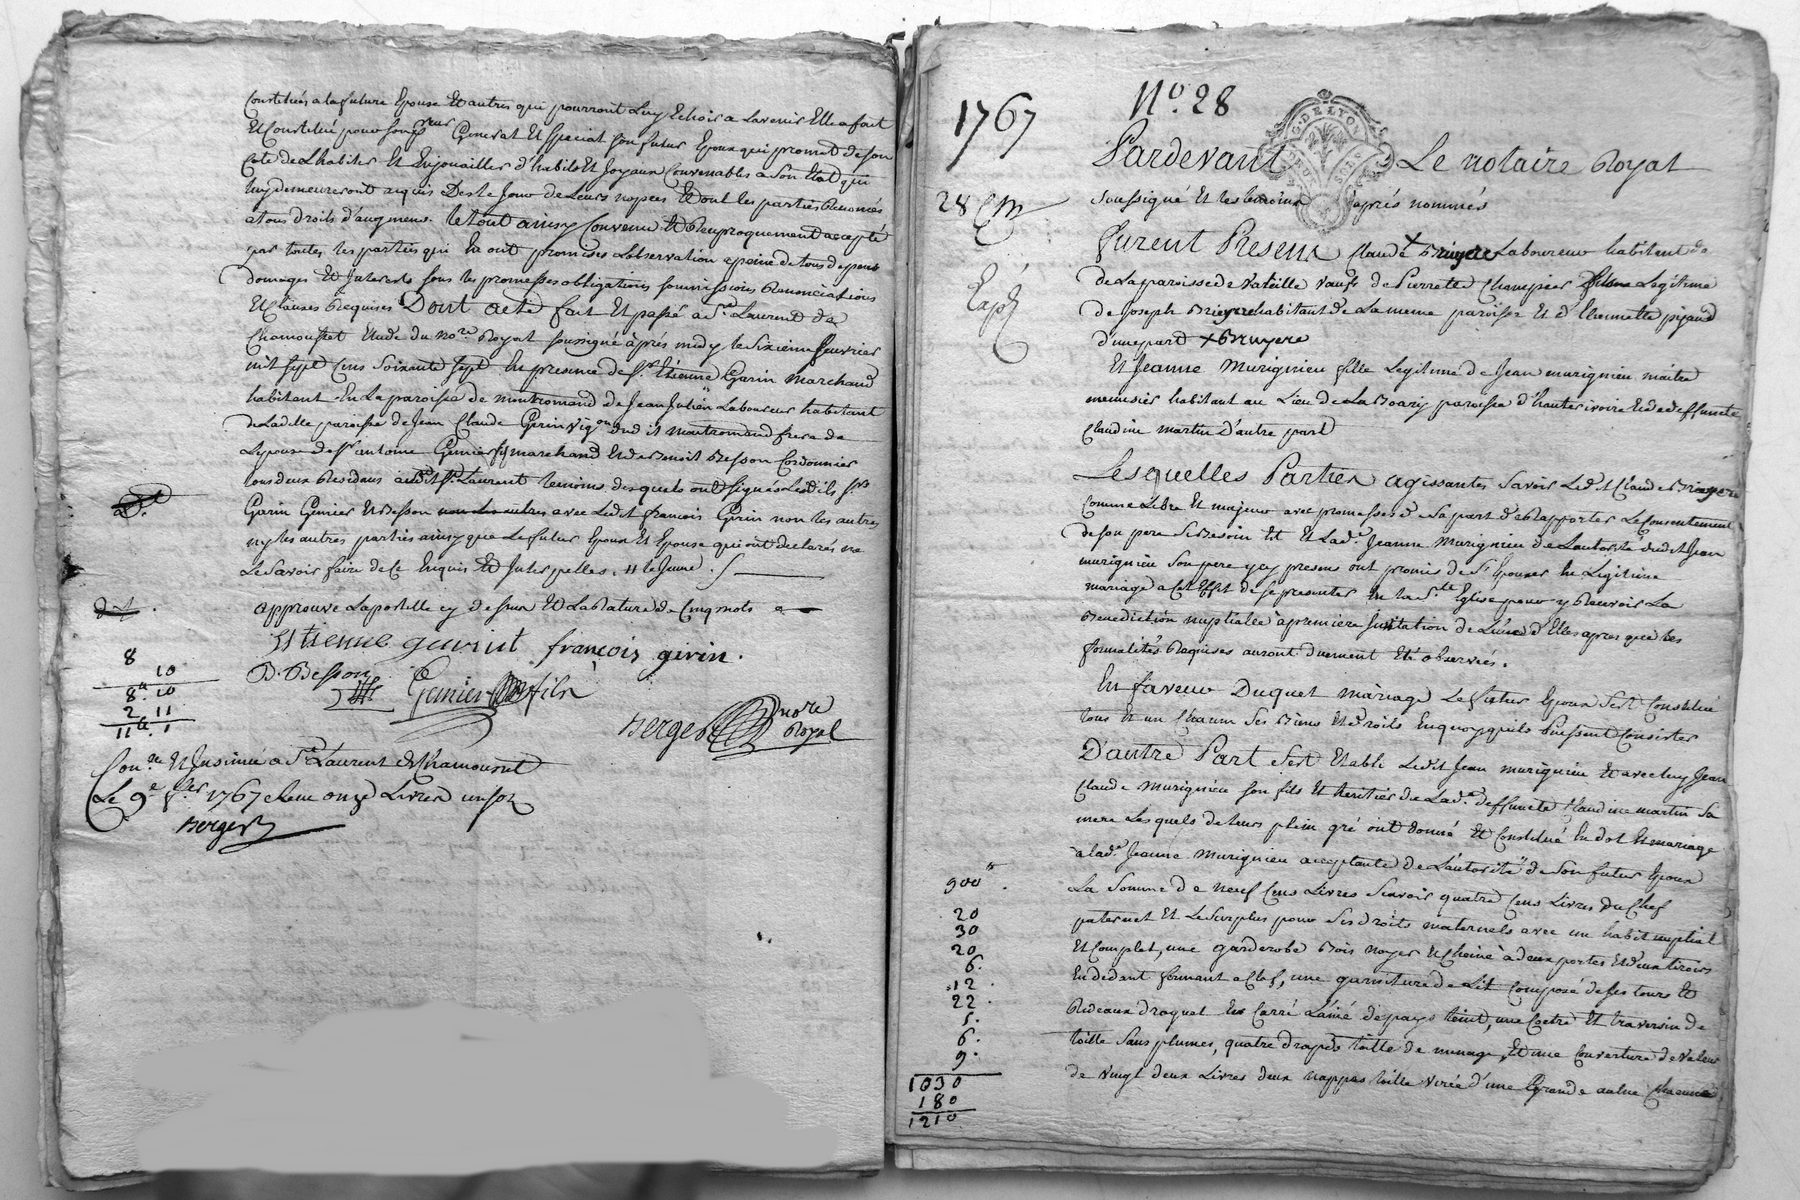 Constitués a la future Epouse Et autres qui pourront Luy Echoir a Lavenir Elle a fait
Et Constitué pour son procureur General Et special son futur Epoux qui promet de son
Coté de Lhabiller Et Enjouailler d'habits Et Joyaux Convenables a son Etat qui
luy demeureront acquis Des le Jour de Leurs nopces Et dont les parties Renoncés
a tous droits d'augment. le tout ainsy Convenu Et Reciproquement accepté
par toutes les parties qui En ont promises Lobservation a peine de tous depens
domages Et Interests sous les promesses obligations soumissions Renonciations
Et Clauses Requises Dont acte fait Et passé a St. Laurent de
Chamousset Etude du no.re Royal soussigné après midy le sixieme feuvrier
mil sept Cens soixante sept En presence de Sr. Etienne Garin Marchand
habitant En La paroisse de montromand de Jean Julien Laboureur habitant
de Ladite paroisse de Jean Claude Girin vigon dud it montromand frere de
Lepouse de Sr antoine Genier fils marchand Et de Benoit Besson Cordonnier
tous deux Residans audit St. Laurent temoins desquels ont signés Lesdits Srs
Garin Genier Et Besson non les autres avec Ledit francois Girin non les autres
ny les autres parties ainsy que Le futur Epoux Et Epouse qui ont declarés ne
Le savoir faire de Ce Enquis Et Interpelles.
approuve Lapostille cy dessus Et La Rature de Cinq mots
Etienne gavint françois girin.
B. Besson Genier fils
Berger nore
Royal
8
10
8.tt 10
2. 11
11.tt 1
Con.le Et Insinué a St. Laurent de Chamousset
Le 9e fber 1767 Recu onze Livres un sol
Berger
1767
No. 28
G. DE LYON
Pardevant Le notaire Royal
28
soussigné Et les temoins après nommés
furent Presens Claude Bruyere Laboureur habitant de
de La paroisse de vateille veuf de Pierrette Champier fils Legitime
de Joseph Bruyere habitant de La meme paroisse Et d'Etiennette pizand
d'une part x Bruyere
Exp.
Et Jeanne Murigneu fille Legitime de Jean murigneu maitre
menusier habitant au Lieu de La Boary paroisse d'hauterivoire Et de deffuncte
Claudine martin d'autre part
Lesquelles Parties agissantes savoir Ledit Claude Bruyere
Comme Libre Et majeur avec promesses de sa part de Rapporter Le Consentement
de son pere si Besoin Et Et Lad.e Jeanne Murigneu de Lautorité dudit Jean
murigneu son pere y cy present ont promis de s'Epouser En Legitime
mariage a Cet Effet de se presenter En la Ste Eglise pour y Recevoir La
Benediction nuptialle à premiere Invitation de Lune d'Elles apres que les
formalités Requises auront duement Eté observées.
En faveur Duquel mariage Le futur Epoux s'est Constitué
tous Et un Chacun ses Biens Et droits En quoy qu'ils Puissent Consister
D'autre Part s'est Etabli Ledit Jean murigneu Et avec luy Jean
Claude Murigneu son fils Et heritier de Lad.e deffuncte Claudine martin sa
mere Lesquels de Leurs plein gré ont donné Et Constitué En dot Et mariage
a lad.e Jeanne Murigneu acceptante de L'autorité de son futur Epoux
900tt.
La somme de neuf Cens Livres scavoir quatre Cens Livres Du Chef
20
paternel Et Le surplus pour ses droits maternels avec un habit nuptial
30
20
Et Complet, une garderobe Bois noyer Et Chéne à deux portes Et deux tiroirs
6.
En dedant fermant a Clef, une garniture de Lit composé de ses tours Et
12
22
Rideaux draguet En Carré Lainé de pays teint, une Coetre Et traversin de
5.
6.
toille sans plumes, quatre draps toille de menage, Et une Couverture de valeur
9.
de vingt deux Livres deux nappes toille virée d'une Grande aulne Chacune
1030
180
1210